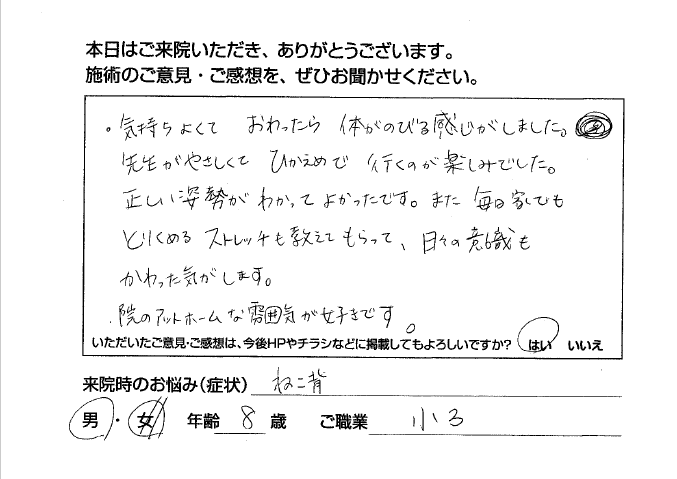 本日はご来院いただき、ありがとうございます。
施術のご意見・ご感想を、ぜひお聞かせください。
・気持ちよくて おわったら 体がのびる感じがしました。
先生がやさしくて ひかえめで 行くのが楽しみでした。
正しい姿勢がわかってよかったです。また毎日家でも
とりくめるストレッチも教えてもらって、日々の意識も
かわった気がします。
・院のアットホームな雰囲気が好きです。
いただいたご意見・ご感想は、今後HPやチラシなどに掲載してもよろしいですか? はい いいえ
来院時のお悩み(症状) ねこ背
男・女 年齢 8 歳 ご職業 小3